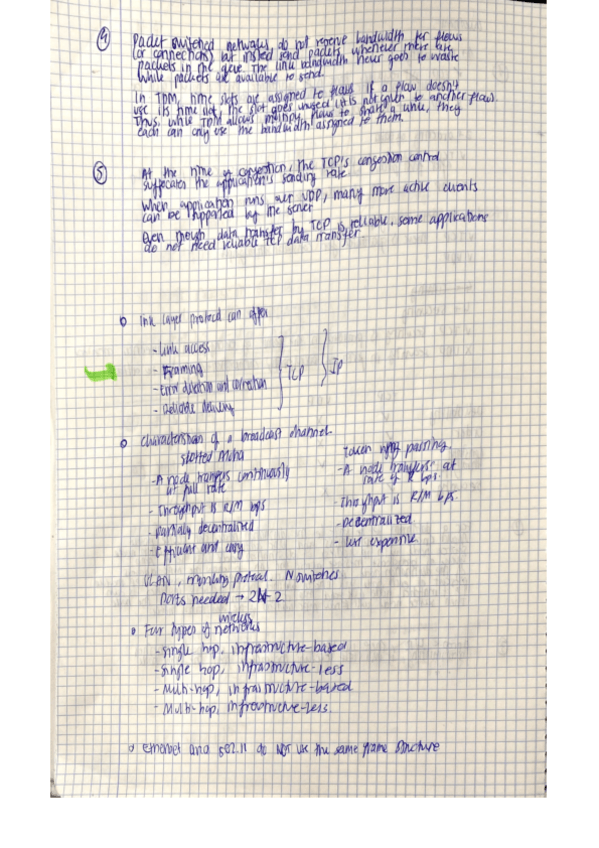 ④ Packet switched networks do not reserve bandwidth for flows
(or connections) but insted send packets whenever there are
packets in the queue. The link bandwidth never goes to waste
while packets are available to send.
In TDM, time slots are assigned to flows. If a flow doesn't
use its time slot, the slot goes unused (it is not given to another flow).
Thus, while TDM allows multiple flows to share a link, they
each can only use the bandwidth assigned to them.
⑤ At the time of congestion, the TCP's congestion control
suffocates the application's sending rate
When application runs over UDP, many more active clients
can be supported by the server
Even though data transfer by TCP is reliable, some applications
do not need reliable TCP data transfer
link layer protocol can offer
- Link access
- Framing
- Error detection and correction
- Reliable delivery
TCP IP
Characteristics of a broadcast channel
slotted Aloha
- A node transfers continuously
at full rate
- Throughput is R/M bps
- partially decentralized
- Efficient and easy
Token ring passing.
- A node transfers at
rate of R bps.
- Throughput is R/M bps
- Decentralized
- less expensive
VLAN, trunking protocol. N switches
Ports needed → 2N-2
Four types of wireless networks
- single hop, infrastructure-based
- single hop, infrastructure-less
- Multi-hop, infrastructure-based
- Multi-hop, infrastructure-less
Ethernet and 802.11 do NOT use the same frame structure